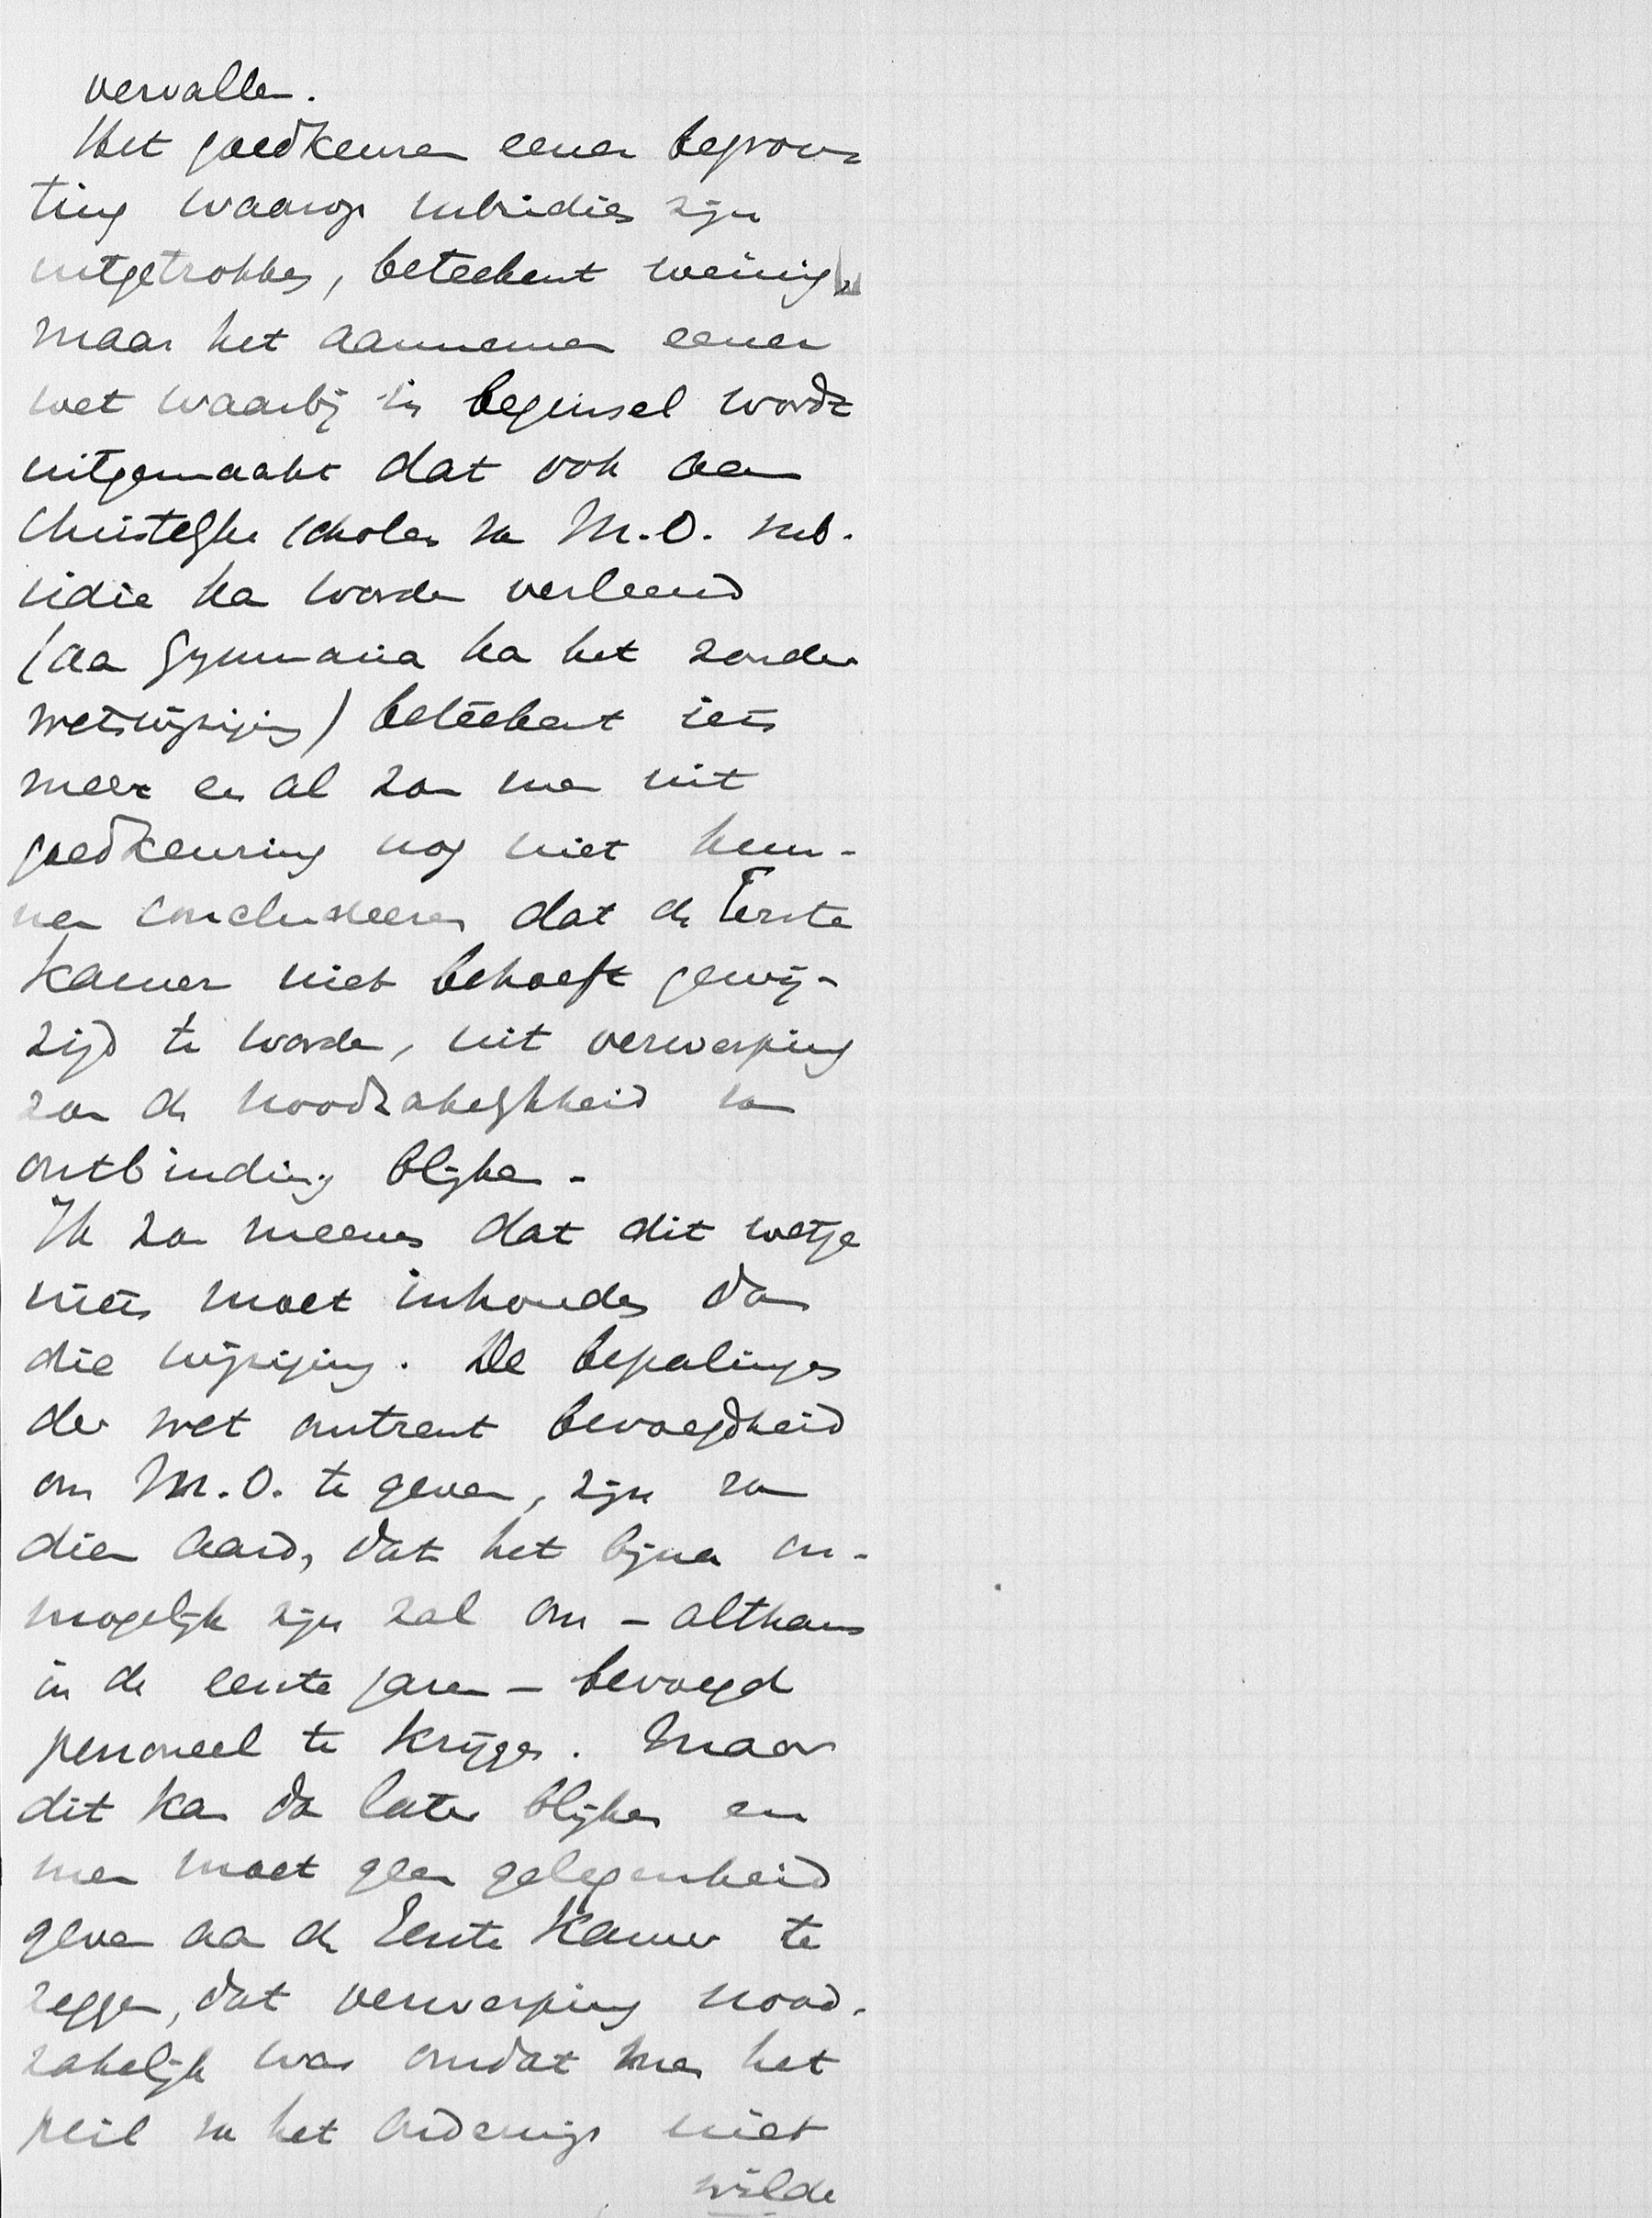 vervallen.
Het goedkeuren eener begroo-
ting waarop subsidies zijn
uitgetrokken, beteekent weinig,
maar het aannemen eener
wet waarbij in beginsel wordt
uitgemaakt dat ook aan
Christelijke scholen van M.O. sub-
sidie kan worden verleend
(aan Gymnasia kan het zonder
wetswijziging) beteekent iets
meer en al zou men uit
goedkeuring nog niet kun-
nen concludeeren dat de Eerste
Kamer niet behoeft gewij-
zigd te worden, uit verwerping
zou de noodzakelijkheid van
ontbinding blijken.
Ik zou meenen dat dit wetje
niets moet inhouden dan
die wijziging. De bepalingen
der wet omtrent bevoegdheid
om M.O. te geven, zijn van
dien aard, dat het bijna on-
mogelijk zijn zal om – althans
in de eerste jaren – bevoegd
personeel te krijgen. Maar
dit kan dan later blijken en
men moet geen gelegenheid
geven aan de Eerste Kamer te
zeggen, dat verwerping nood-
zakelijk was omdat men het
peil van het onderwijs niet
wilde